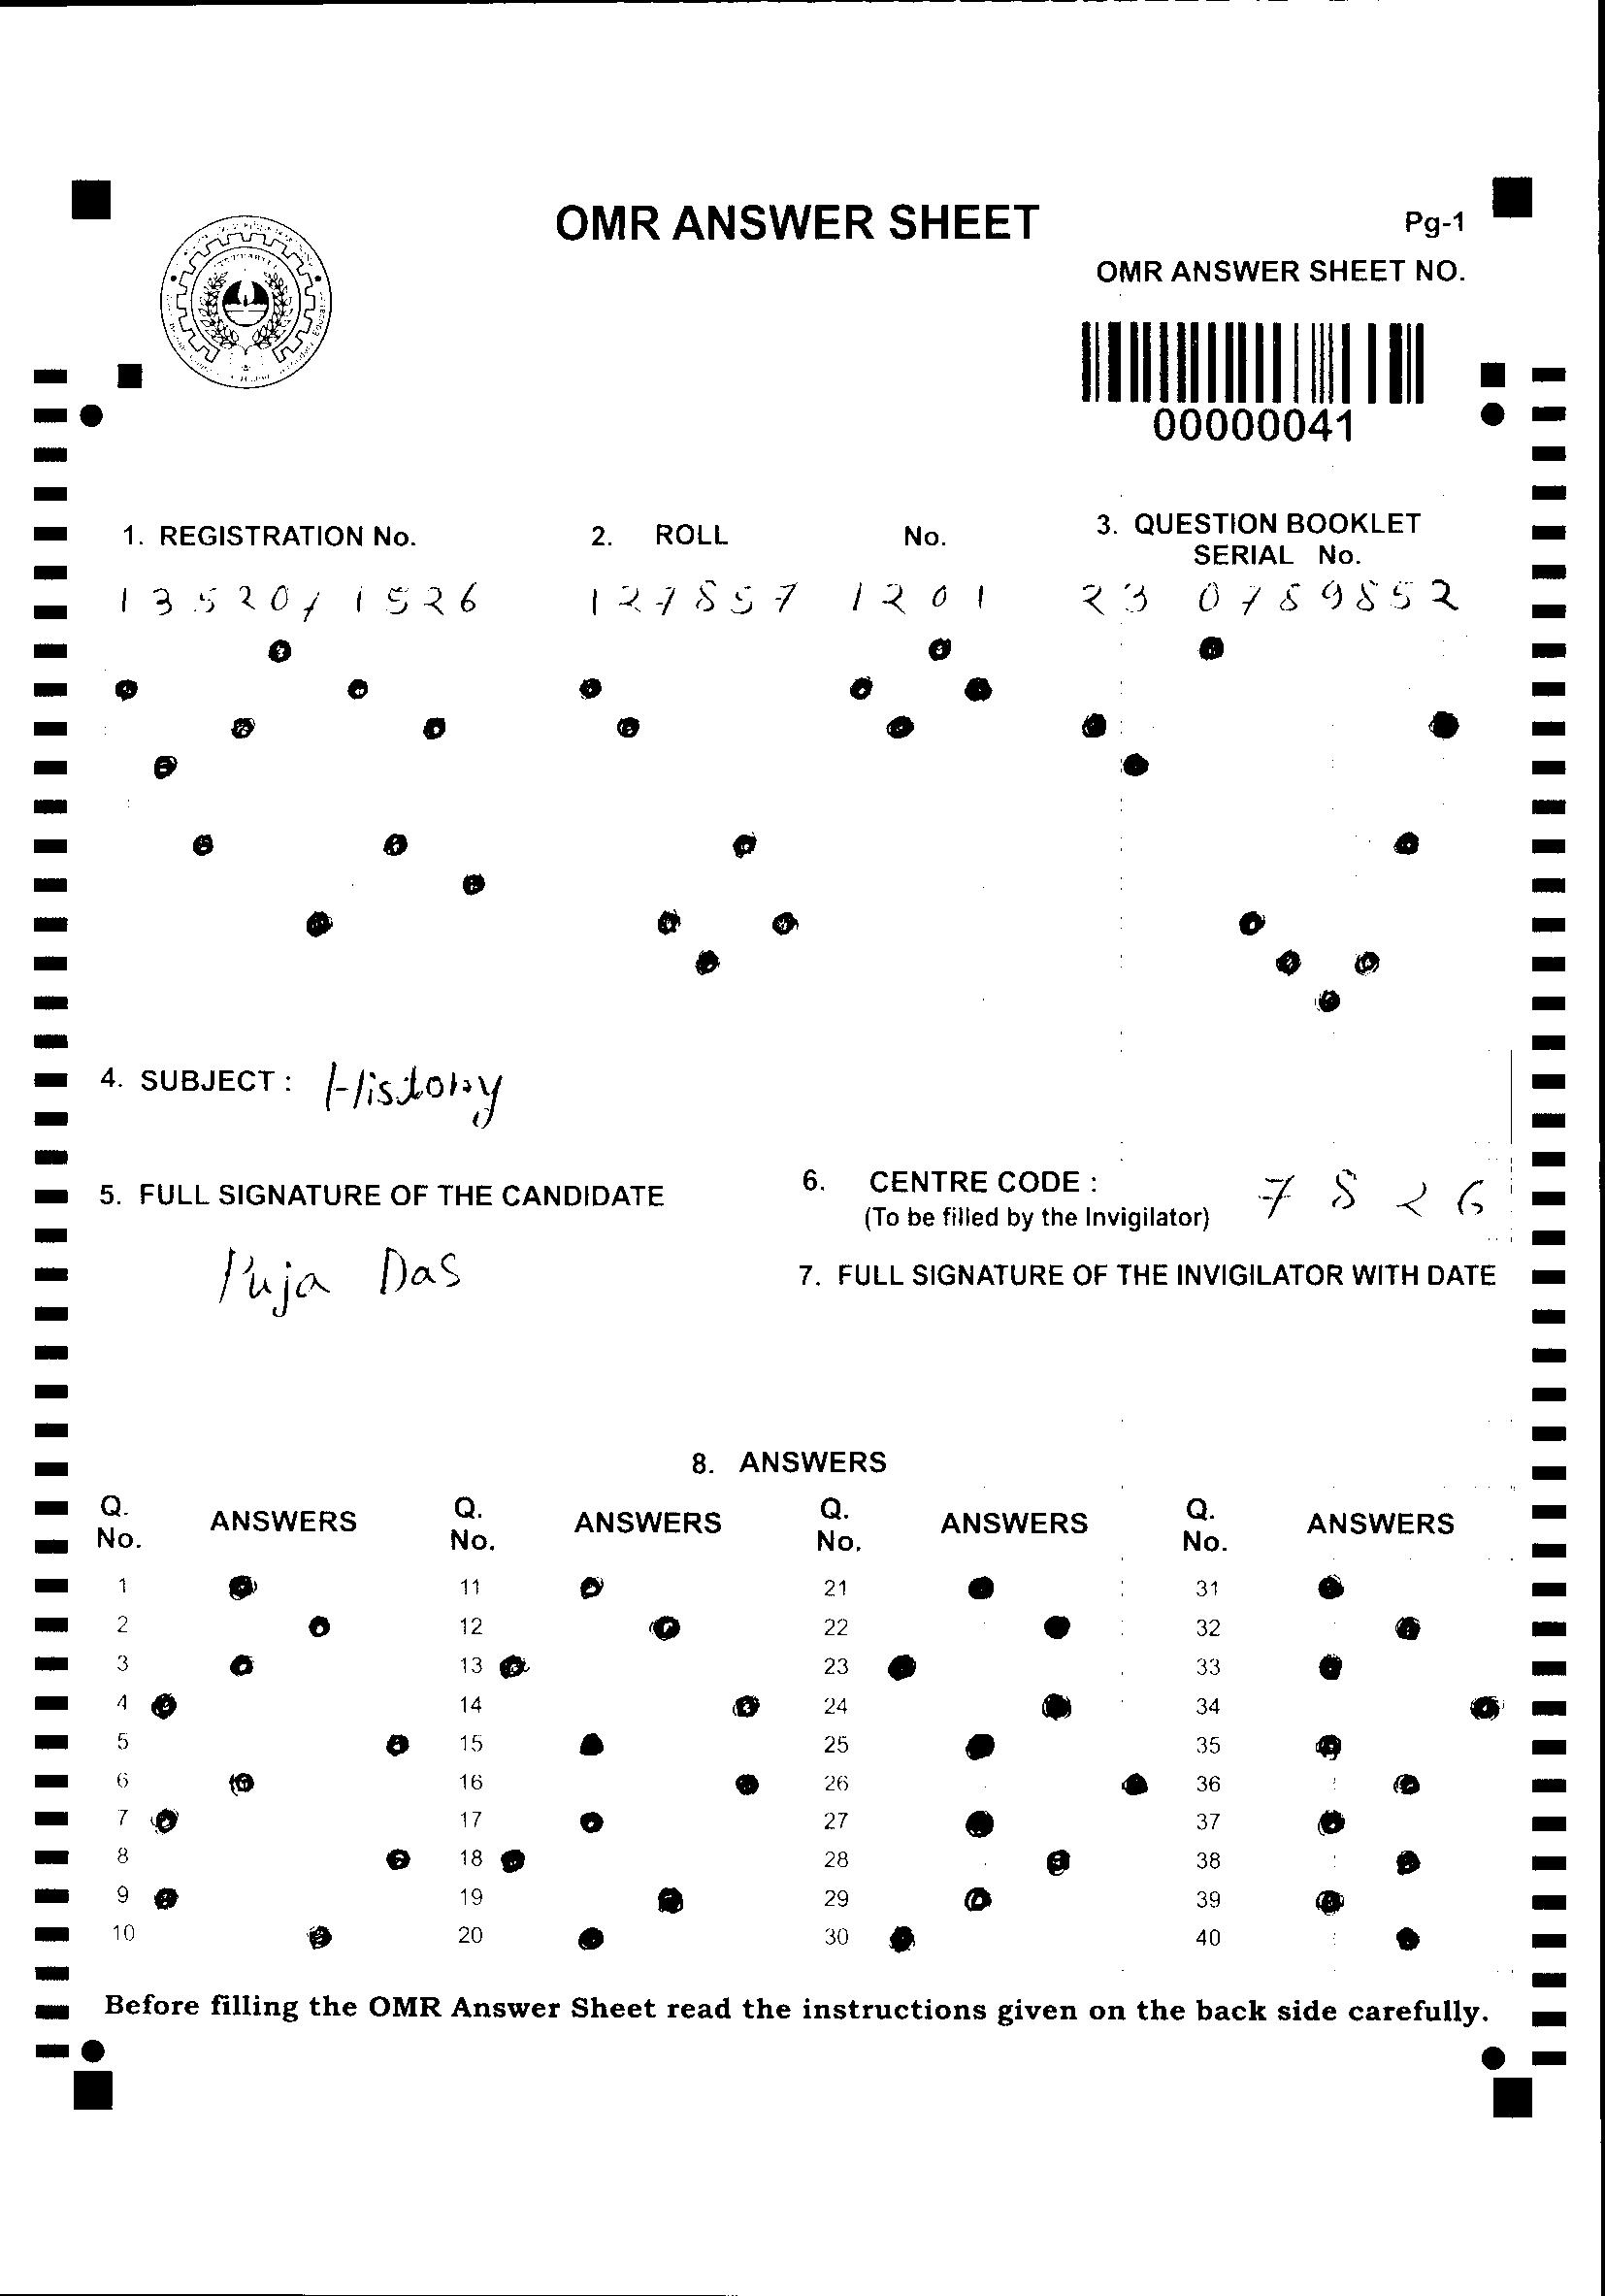 OMR ANSWER SHEET
Pg-1
OMR ANSWER SHEET NO.
00000041
1. REGISTRATION No.
2. ROLL No.
3. QUESTION BOOKLET
SERIAL No.
1352071526
127857 1201
23 0789852
4. SUBJECT : History
5. FULL SIGNATURE OF THE CANDIDATE
6. CENTRE CODE : 7826
(To be filled by the Invigilator)
Puja Das
7. FULL SIGNATURE OF THE INVIGILATOR WITH DATE
8. ANSWERS
Q. No. ANSWERS Q. No. ANSWERS Q. No. ANSWERS Q. No. ANSWERS
1 11 21 31
2 12 22 32
3 13 23 33
4 14 24 34
5 15 25 35
6 16 26 36
7 17 27 37
8 18 28 38
9 19 29 39
10 20 30 40
Before filling the OMR Answer Sheet read the instructions given on the back side carefully.